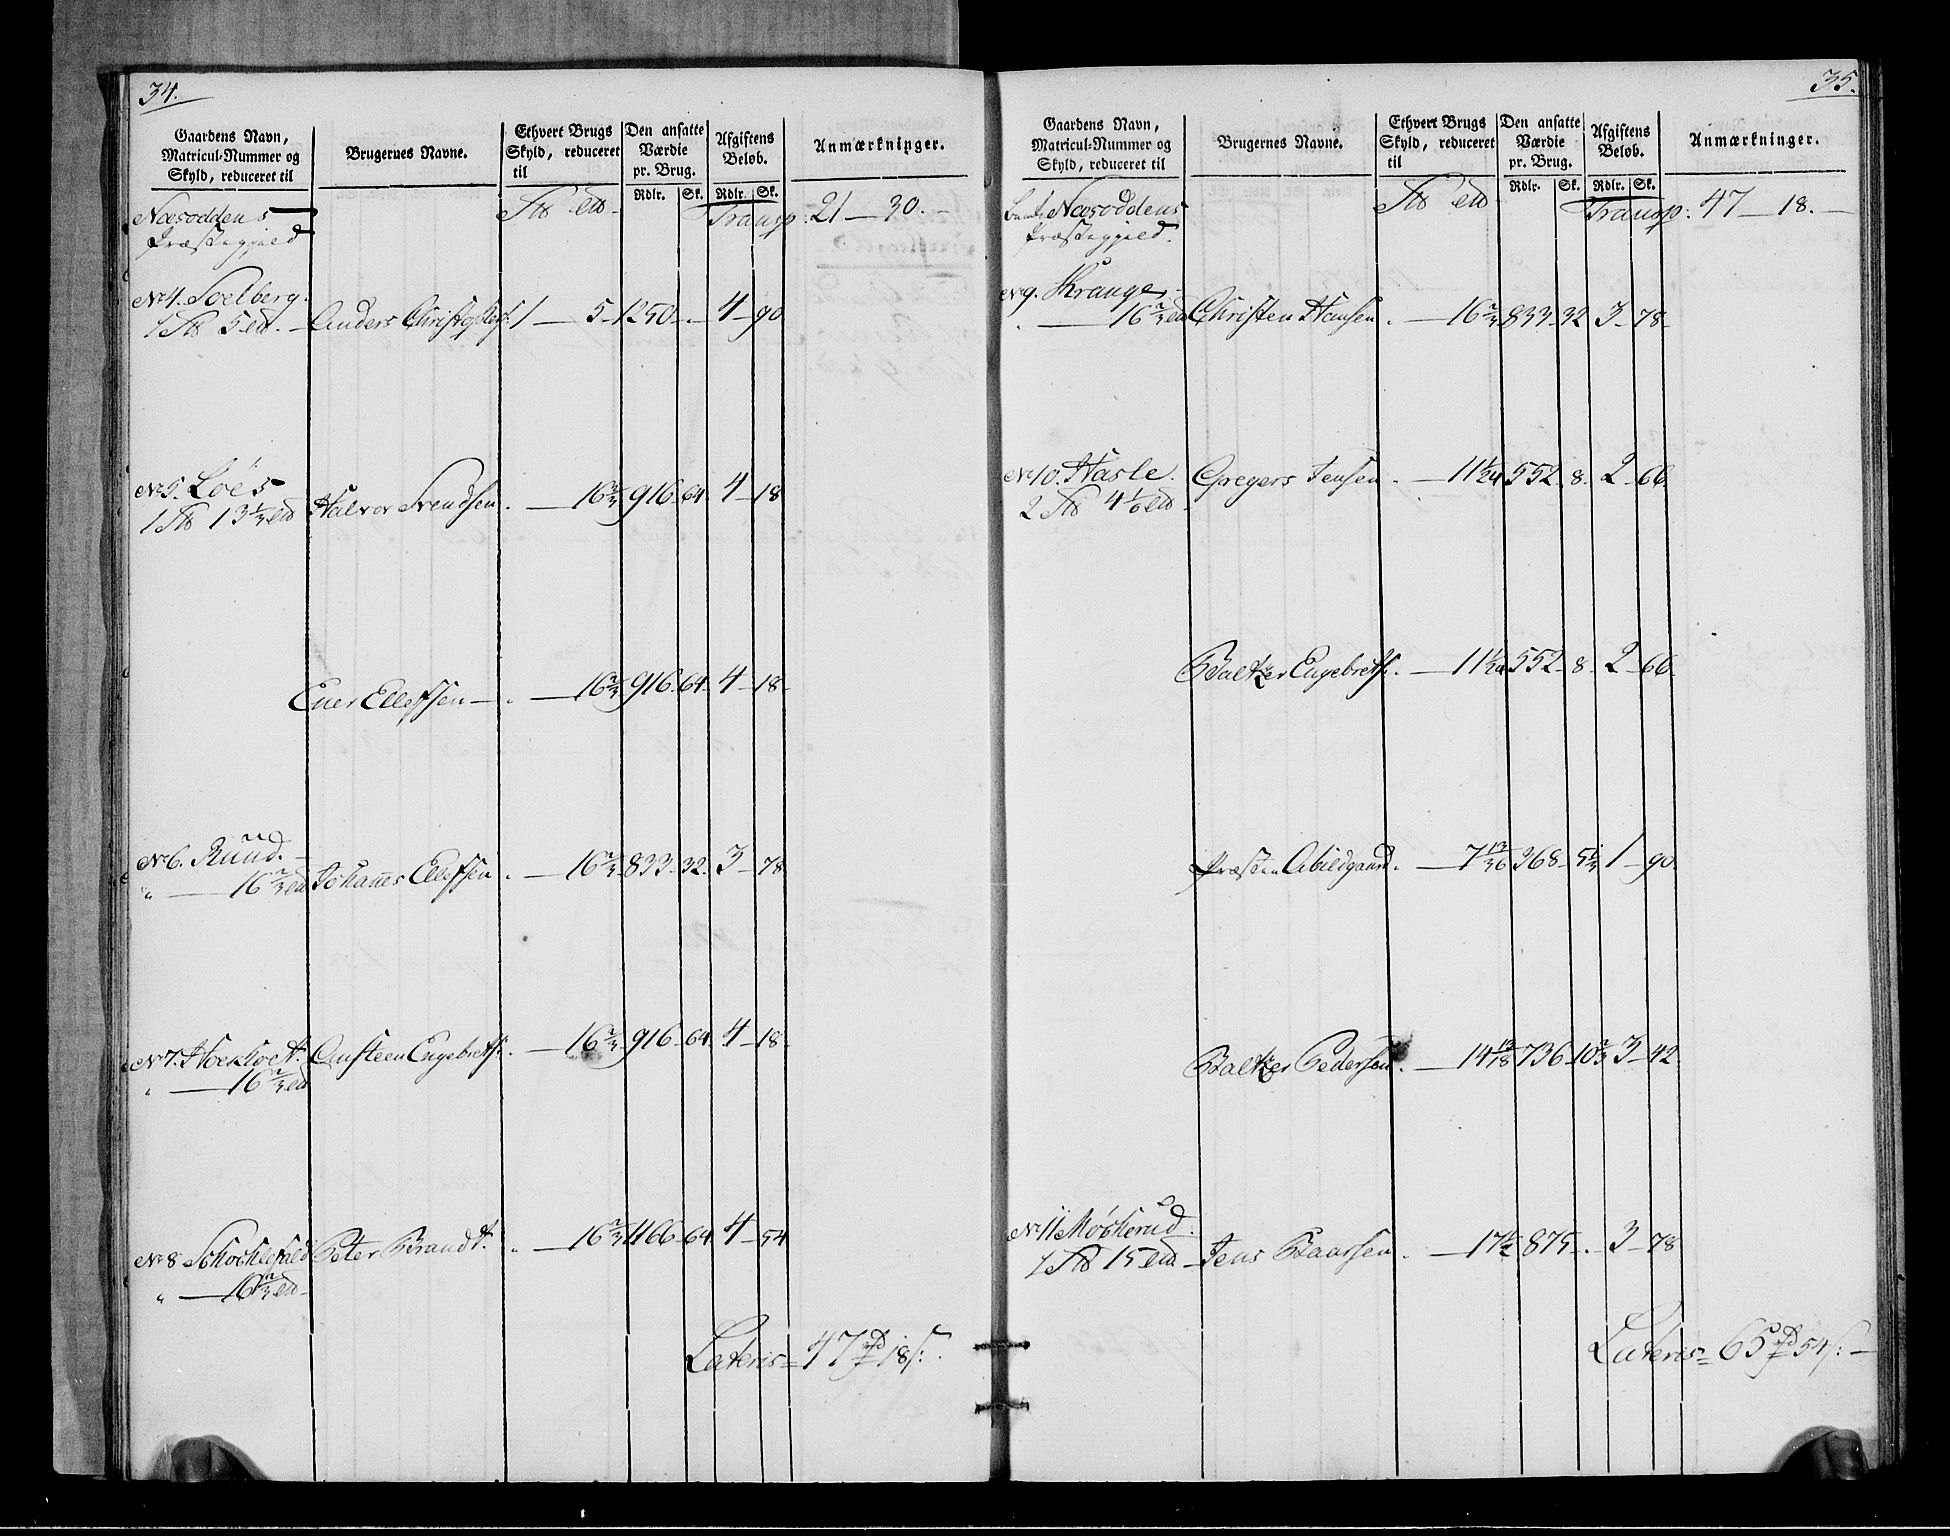 34.
Gaardens Navn, Matricul-Nummer og Skyld, reduceret til | Brugernes Navne. | Ethvert Brugs Skyld, reduceret til | Den ansatte Værdie pr. Brug. Rdlr. Sk. | Afgiftens Beløb. Rdlr. Sk. | Anmærkninger.
Næsoddens Transp: 21 — 30. —
Præstegjeld
No 4. Soelberg.
1 5 — Anders Christophers: 1 — 5 — 1250 — . — 4 — 90
No 5. Loes
1 13 1/3 Halvor Svendsen . — 16 2/3 916 — 64. 4 — 18
Ener Ellefsen — . — 16 2/3 916 — 64. 4 — 18 —
No 6. Ruud. —
„ — 16 2/3 Johannes Ellefsen . — 16 2/3 833 — 32. 3 — 78
No 7.
„ — 16 2/3 Ansteen Engebrets: . — 16 2/3 916 — 64. 4 — 18 —
No 8 Peter Brandt. . — 16 2/3 1166 — 64. 4 — 54
„ — 16 2/3
Lateris = 47 rd 18 s:
35.
Gaardens Navn, Matricul-Nummer og Skyld, reduceret til | Brugernes Navne. | Ethvert Brugs Skyld, reduceret til | Den ansatte Værdie pr. Brug. Rdlr. Sk. | Afgiftens Beløb. Rdlr. Sk. | Anmærkninger.
Næsoddens Transp: 47 — 18. —
Præstegjeld.
No 9. Krange, —
. — 16 2/3 Christen Hansen . — 16 2/3 833 — 32 3 — 78 —
No 10. Hasle. Gregers Jensen . — 11 1/24 552 — 8. 2 — 66
2 4 1/6
Baltzer Engebrets: . — 11 1/24 552 — 8 — 2 — 66
Præsten Abildgaard . — 7 13/36 368 — 5 1/3 1 — 90.
Baltzer Pedersen . — 14 13/18 736 — 10 2/3 3 — 42
No 11 Møskerud.
1 15 — Jens Baarsen . — 17 1/2 875 — . — 3 — 78
Lateris = 65 rd 54 s: —